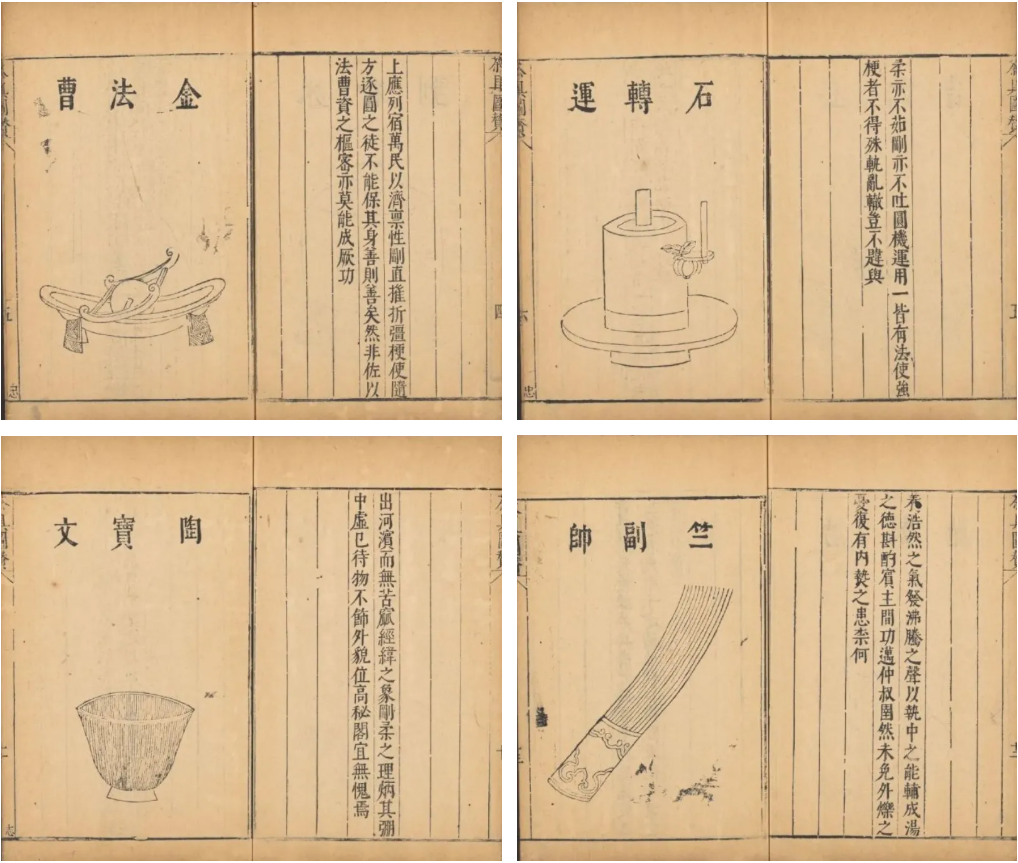 茶具圖贊
四
上應列宿萬民以濟禀性剛直摧折彊梗使隨
方逐圓之徒不能保其身善則善矣然非佐以
法曹資之樞密亦莫能成厥功
金法曹
五
茶具圖贊
五
柔亦不茹剛亦不吐圓機運用一皆有法使強
梗者不得殊軌亂轍豈不韙與
石轉運
六
出河濱而無苦窳經緯之象剛柔之理炳其弸
中虛已待物不飾外貌位高秘閣宜無愧焉
陶寶文
養浩然之氣發沸騰之聲以執中之能輔成湯
之德斟酌賓主間功邁仲叔圉然未免外爍之
憂復有内熱之患柰何
竺副帥